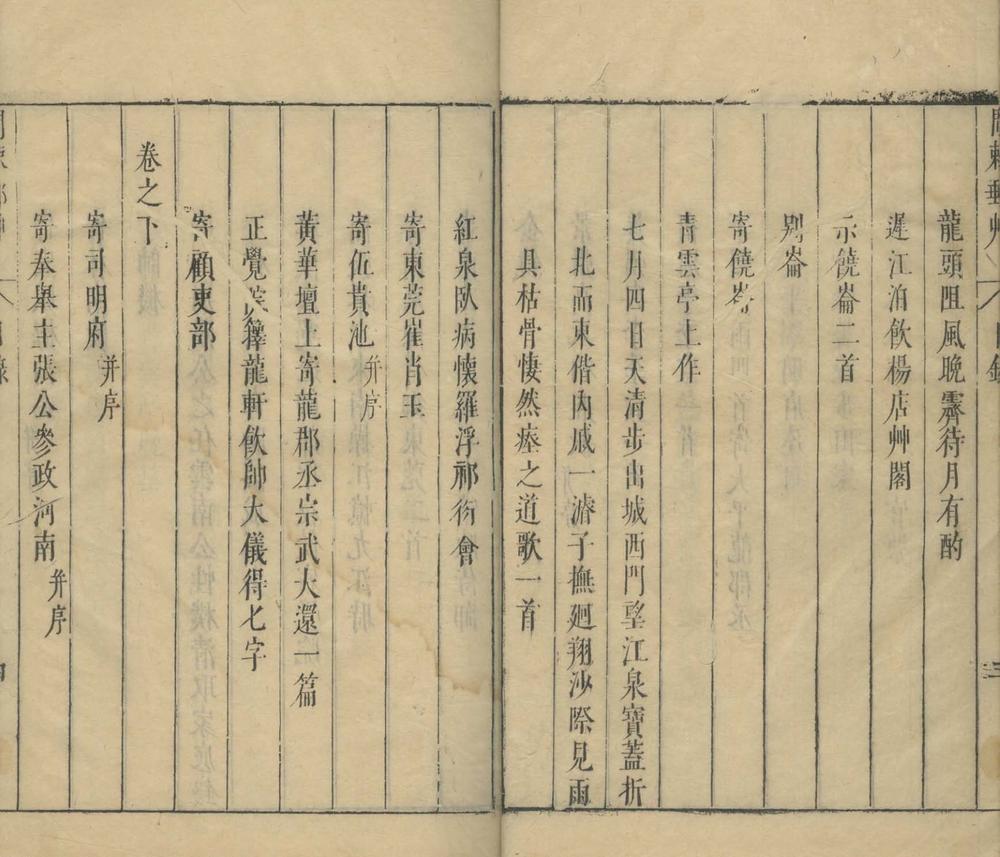 龍頭阻風晚霽待月有酌
遲江泊飲楊店艸閣
示饒崙二首
別崙
寄饒崙
青雲亭上作
七月四日天清步出城西門望江泉寶蓋折
北而東偕內戚一濬子撫廻翔沙際見雨
具枯骨悽然瘞之道歌一首
紅泉臥病懷羅浮祁衍會
寄東莞崔肖玉
寄伍貴池并序
黃華壇上寄龍郡丞宗武大還一篇
正覺籜龍軒飲帥大儀得七字
寄顧吏部
卷之下
寄司明府并序
寄奉舉主張公參政河南并序